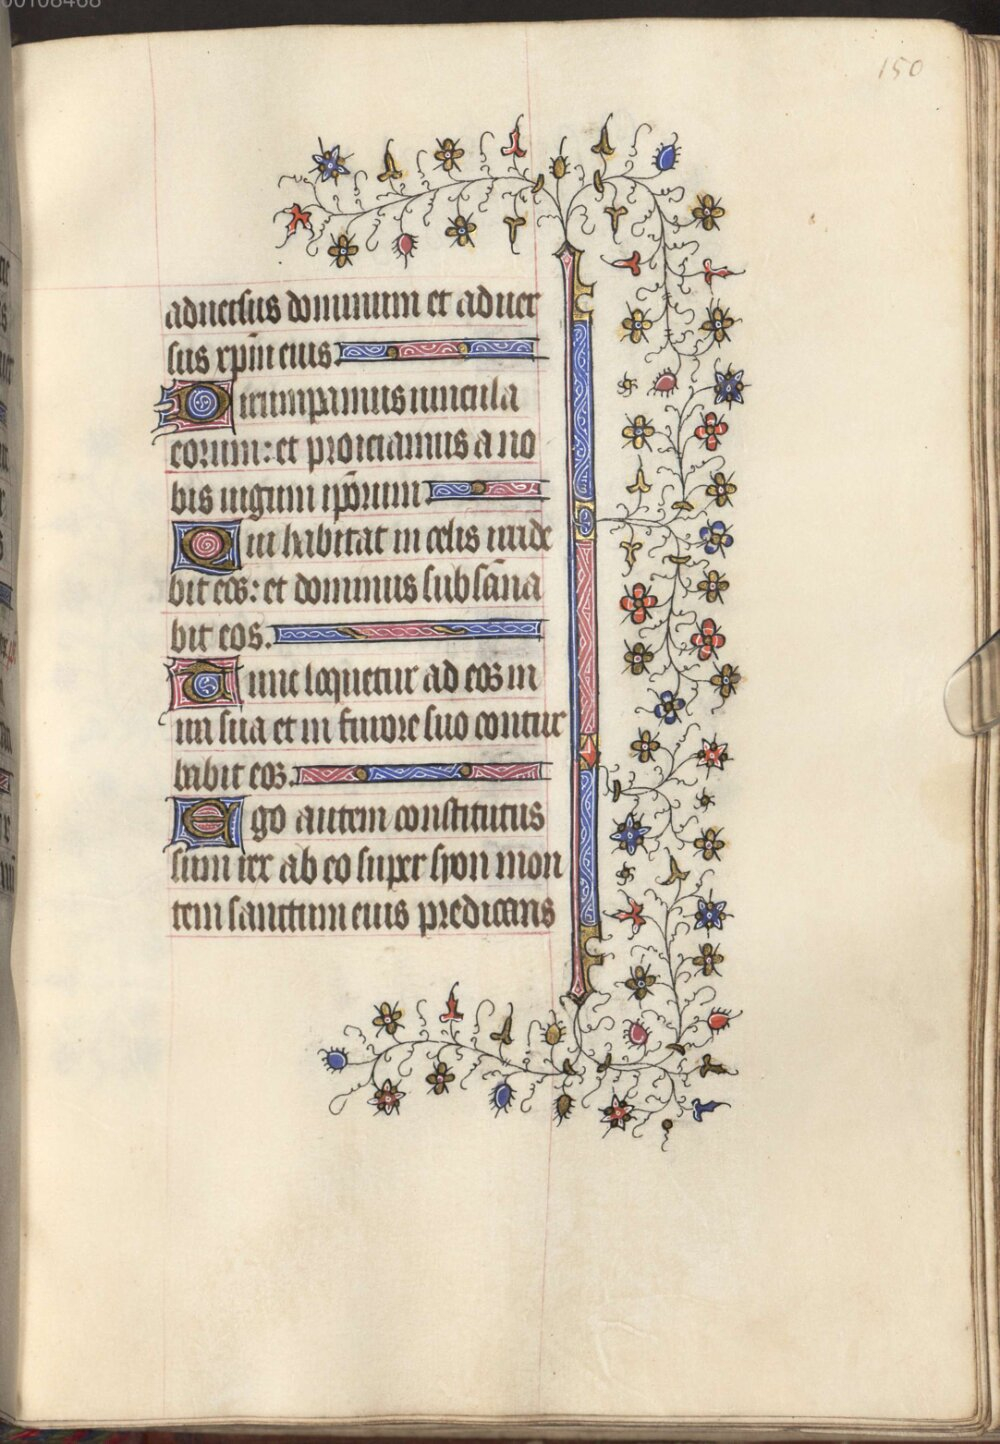 00108468
150
aduersus dominum et aduer
sus xp̄m eius
Dirumpamus uincula
eorum: et proiciamus a no
bis iugum ip̄orum
Qui habitat in celis irride
bit eos: et dominus subsāna
bit eos.
Tunc loquetur ad eos in
ira sua et in furore suo contur
babit eos.
Ego autem constitutus
sum rex ab eo super syon mon
tem sanctum eius predicans